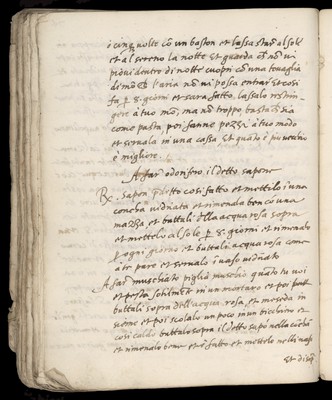 ò cinq; uolte cõ un baston et lassa star al sole
et al sereno la notte et guarda chẽ nõ ui
pioui dentro di notte cuopri cõ una touaglia
di mõ ch l'aria nõ ui possa entrar et cosi
fa p 8. giorni et sara fatto, lassalo restrin
gere à tuo mõ, ma nõ troppo, basta ch sia
come pasta poi fanne pezzi à tuo modo
et serualo in una cassa et quato è piu uechio
è migliore.
A far odorifero il detto sapone
Rx. sapon pdetto cosi fatto et mettilo ĩ una
concha uidriata et rimenala ben cõ una
mazza et buttali della acqua rosa sopra
et mettilo al sole p 8. giorni et rimenalo
p ogni giorno et buttali acqua rosa come
à te pare et serualo ĩ uaso uidriato
A far muschiato piglia muschio quato tu uoi
et pesta sottilmẽt in un mortaro et poi
buttali sopra dell'acqua rosa, et meseda in
sieme et poi scolalo un poco in un bichiero et
cosi caldo buttalo sopra il detto sapõ nella cõcha
et rimenalo bene et è fatto et mettelo nelli uasi